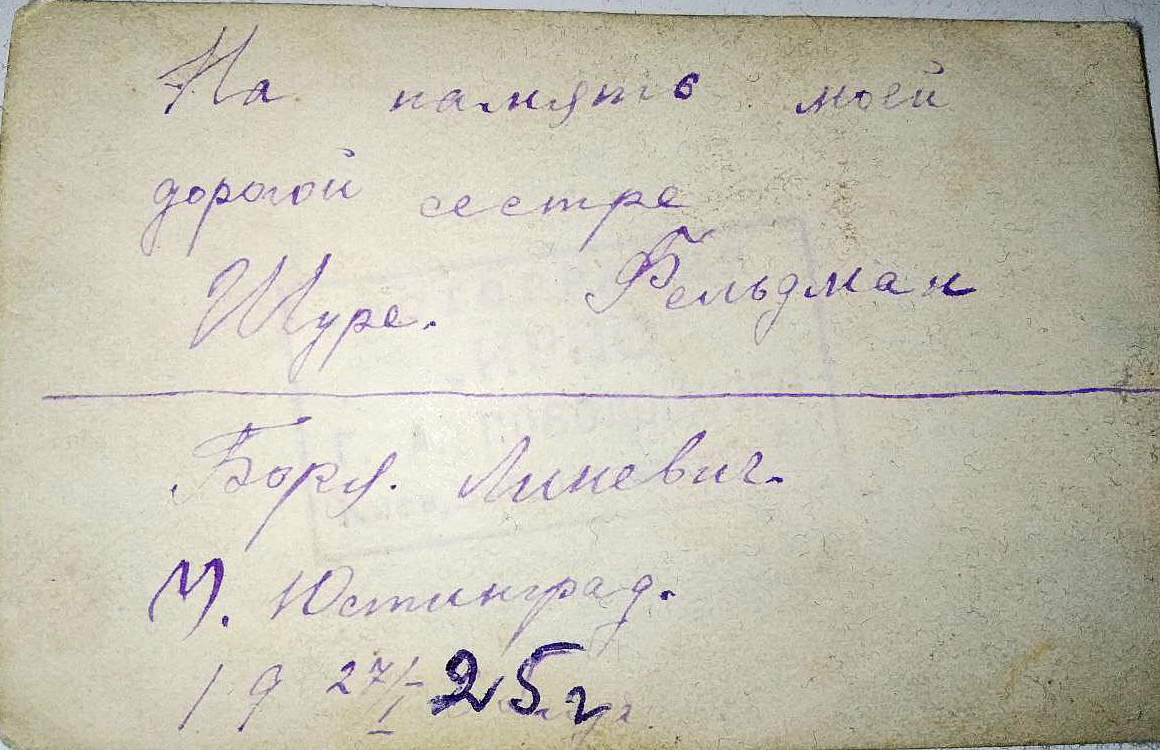 На память моей
дорогой сестре
Шуре. Фельдман
Боря. Линевич.
М. Юстинград.
19 27/I 25 г